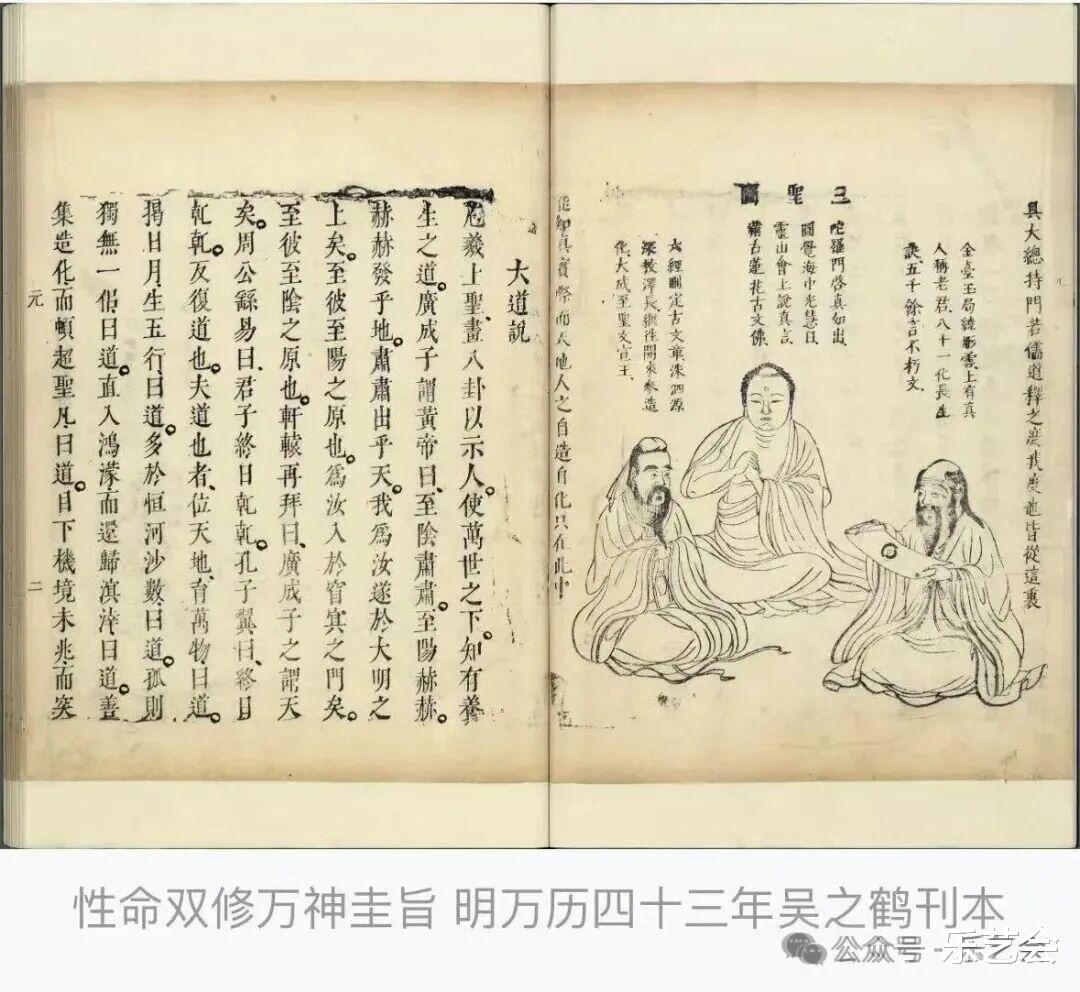 具大總持門若儒道釋之度我度他皆從這裏
三聖圖
金臺玉局繞彤雲上有真
人稱老君八十一化長生
訣五千餘言不朽文
陀羅門啓真如出
圓覺海中光慧日
靈山會上說真言
滿舌蓮花古文佛
六經刪定古文章洙泗源
深教澤長繼往開來參造
化大成至聖文宣王
能知真實際而天地人之自造自化只在此中
大道說
庖羲上聖、畫八卦以示人。使萬世之下。知有養
生之道。廣成子謂黃帝曰、至陰肅肅。至陽赫赫。
赫赫發乎地。肅肅出乎天。我爲汝遂於大明之
上矣。至彼至陽之原也。爲汝入於窅冥之門矣。
至彼至陰之原也。軒轅再拜曰、廣成子之謂天
矣。周公繇易曰、君子終日乾乾。孔子翼曰、終日
乾乾。反復道也。夫道也者、位天地、育萬物曰道。
揭日月、生五行、曰道。多於恒河沙數、曰道。孤則
獨無一侶、曰道。直入鴻濛、而還歸溟涬、曰道。善
集造化、而頓超聖凡、曰道。目下機境未兆、而突
元
二
性命双修万神圭旨 明万历四十三年吴之鹤刊本
公众号·乐艺会